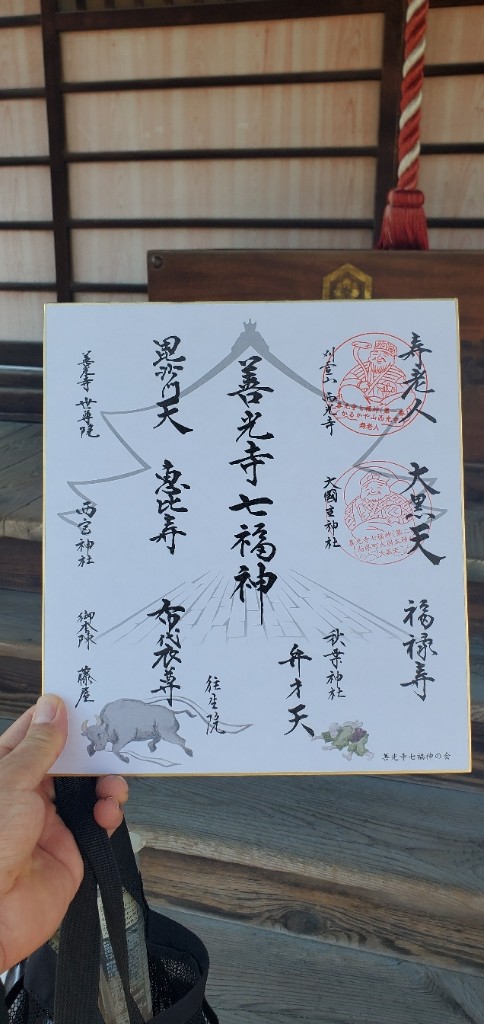 寿老人
刈萱山 西光寺
大黒天
大國主神社
福禄寿
秋葉神社
弁才天
往生院
善光寺七福神
毘沙門天
善光寺 世尊院
恵比寿
西宮神社
布袋尊
御本陣 藤屋
善光寺七福神の会
かるかや山西光寺
寿老人